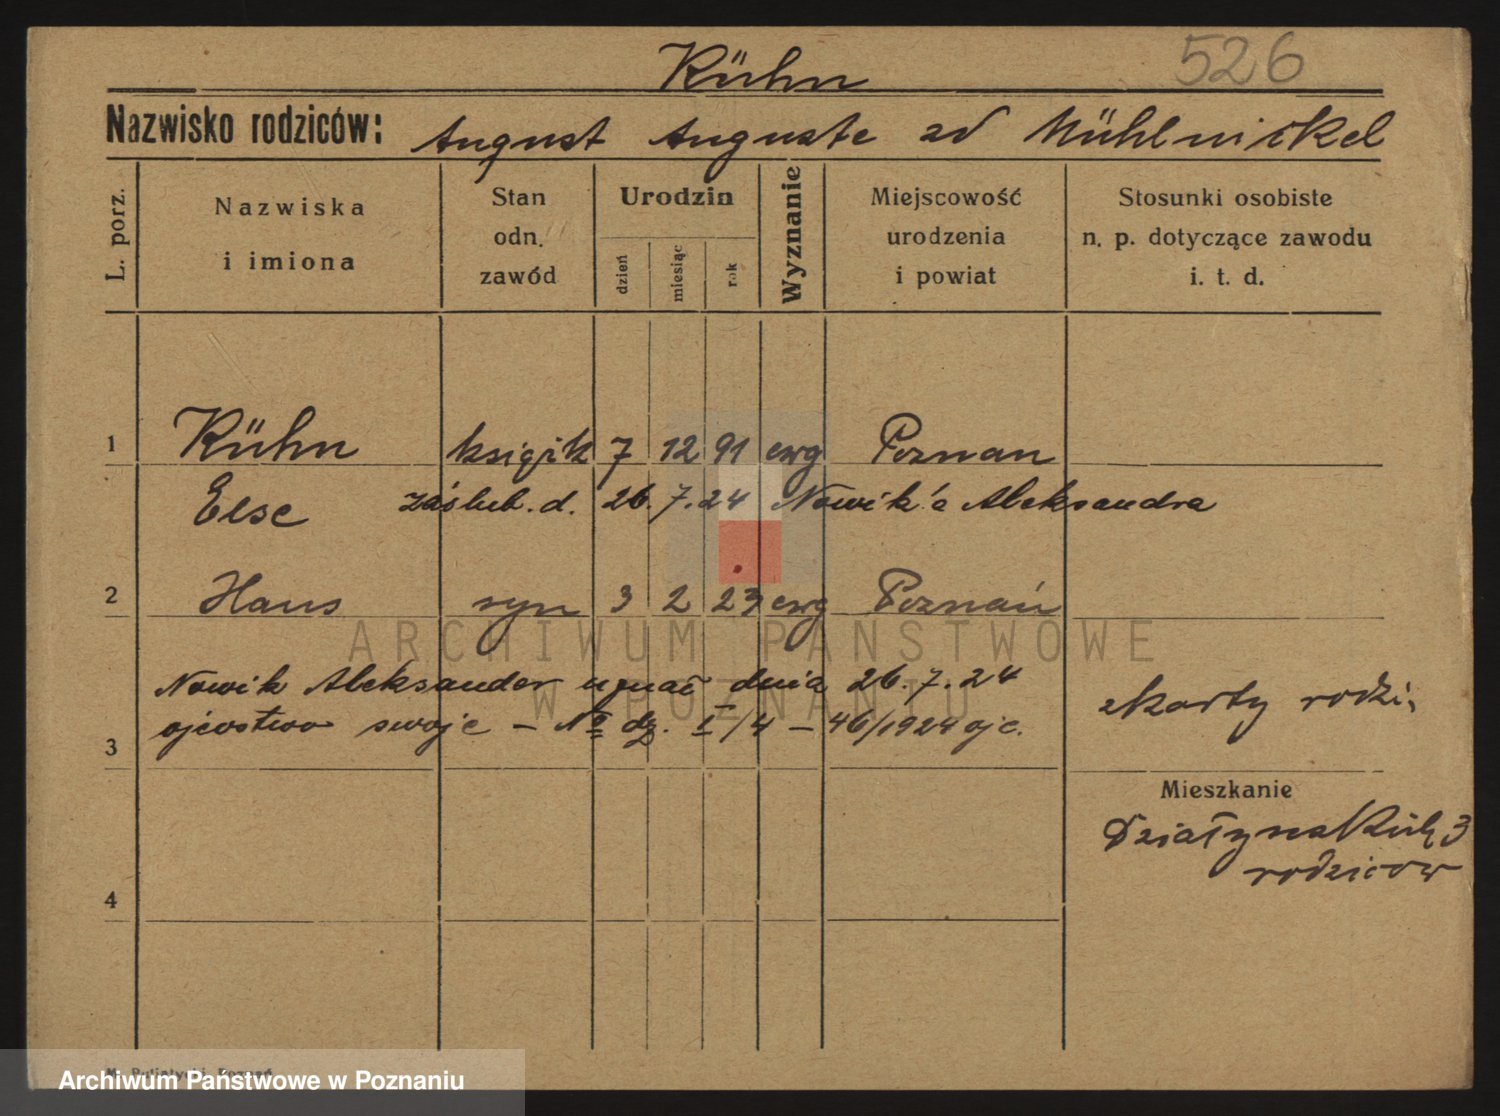 Kühn
526
Nazwisko rodziców: August Auguste zd Mühlnickel
L. porz.
Nazwiska
i imiona
Stan
odn.
zawód
Urodzin
dzień
miesiąc
rok
Wyznanie
Miejscowość
urodzenia
i powiat
Stosunki osobiste
n. p. dotyczące zawodu
i. t. d.
1 Kühn księgk 7 12 91 ewg Poznan
Else zaślub. d. 26. 7. 24 Nowik'a Aleksandra
2 Hans syn 3 2 23 ewg Poznań
ARCHIWUM PAŃSTWOWE
W POZNANIU
Nowik Aleksander uznał dnia 26. 7. 24
ojcostwo swoje – № dz. I/4 – 46/1924 ojc.
z karty rodzi.
3
Mieszkanie
Działyńskich 3
rodziców
4
Poznań
Archiwum Państwowe w Poznaniu